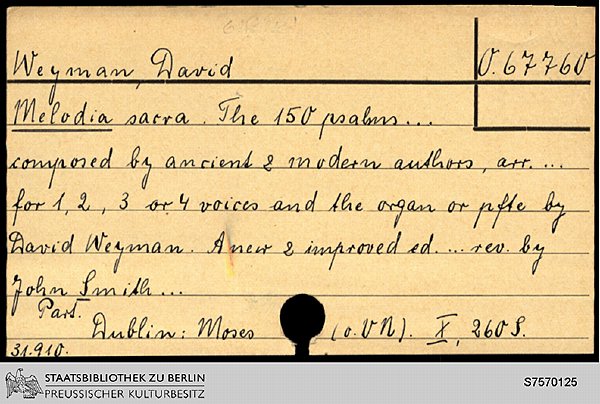 Weyman, David
O. 67760
Melodia sacra. The 150 psalms ...
composed by ancient & modern authors, arr. ...
for 1, 2, 3 or 4 voices and the organ or pfte by
David Weyman. A new & improved ed. ... rev. by
John Smith ...
Part.
Dublin: Moses (o. VN). X, 260 S.
31.910.
STAATSBIBLIOTHEK ZU BERLIN
PREUSSISCHER KULTURBESITZ
S7570125